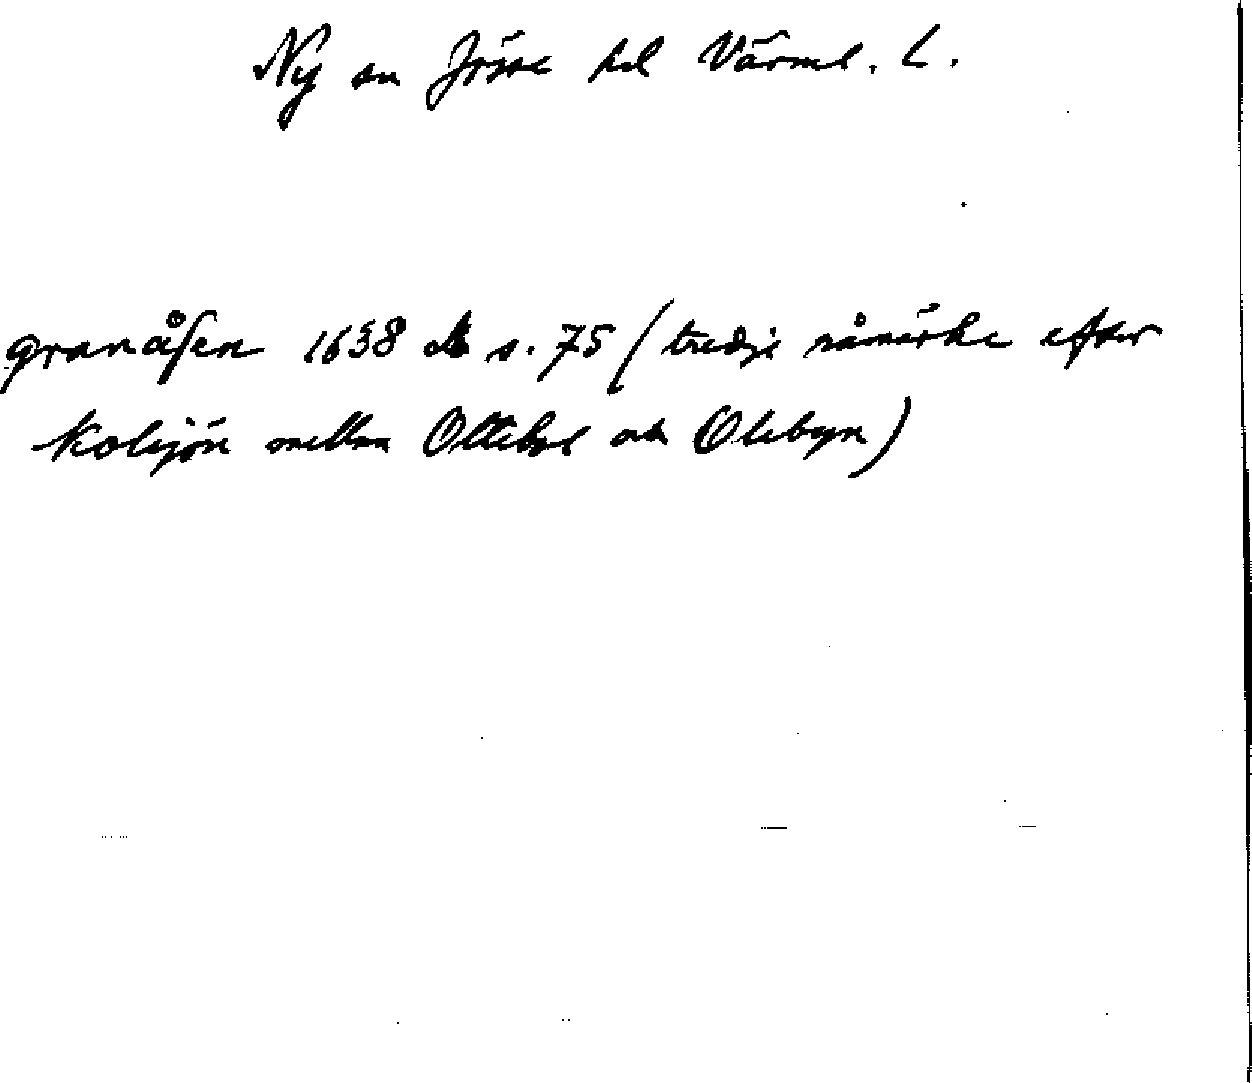 Ny sn Jösse hd Värml. L.
granåsen 1638 db s. 75 (tredje råmärke efter
Kolsjön mellan Ottebol och Olebyn)